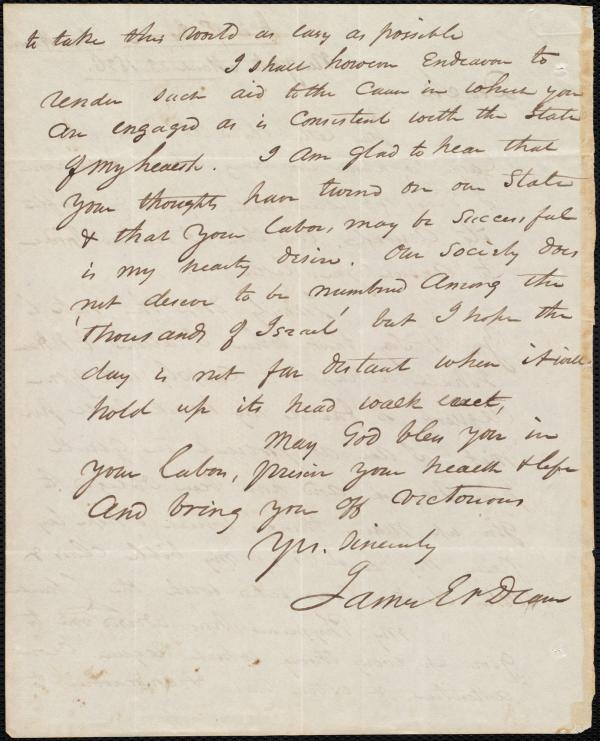 to take this world as easy as possible
I shall however Endeavor to
render such aid to the Cause in which you
are engaged as is Consistent with the State
of my health. I am glad to hear that
your thoughts have turned on our State
& that your labors, may be successful
is my hearty desire. Our Society does
not deserve to be numbered among the
'thousands of Israel' but I hope the
day is not far distant when it will
hold up its head walk erect,
May God bless you in
your labors, preserve your health & life
And bring you off victorious
Yrs. Sincerely
James